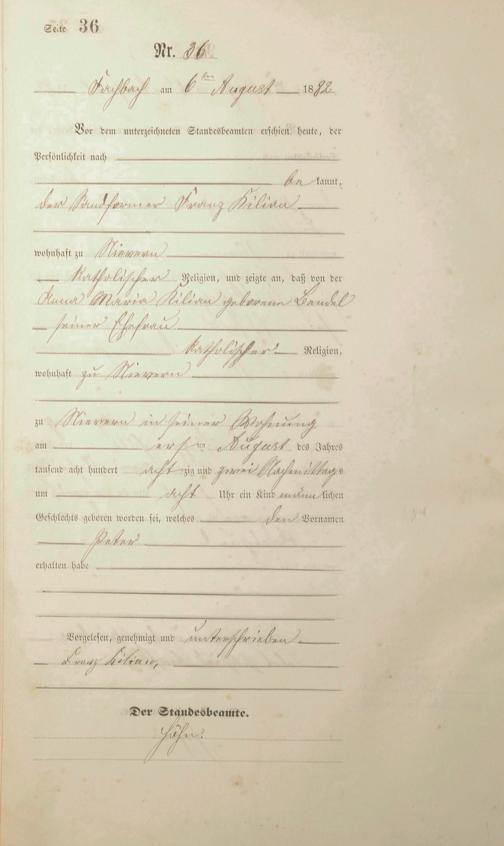 Seite 36
Nr. 36.
Fachbach am 6ten August 1882
Vor dem unterzeichneten Standesbeamten erschien heute, der
Persönlichkeit nach
be kannt,
der Sandformer Franz Kilian
wohnhaft zu Nievern
katholischer Religion, und zeigte an, daß von der
Anna Maria Kilian geborene Bandel
seiner Ehefrau
katholischer Religion,
wohnhaft zu Nievern
zu Nievern in seiner Wohnung
am ersten August des Jahres
tausend acht hundert acht zig und zwei Nachmittags
um acht Uhr ein Kind männlichen
Geschlechts geboren worden sei, welches den Vornamen
Peter
erhalten habe
Vorgelesen, genehmigt und unterschrieben
Franz Kilian,
Der Standesbeamte.